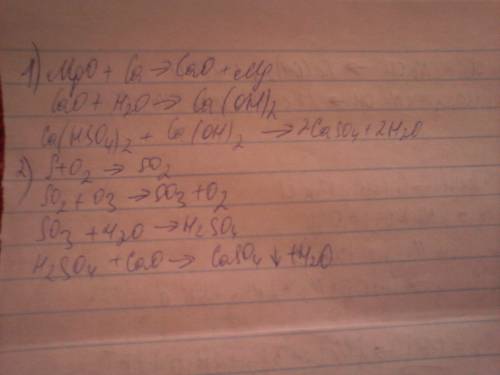 1) MgO + Ca → CaO + Mg
CaO + H2O → Ca(OH)2
Ca(HSO4)2 + Ca(OH)2 → 2CaSO4 + 2H2O
2) S + O2 → SO2
SO2 + O3 → SO3 + O2
SO3 + H2O → H2SO4
H2SO4 + CaO → CaSO4 ↓ + H2O